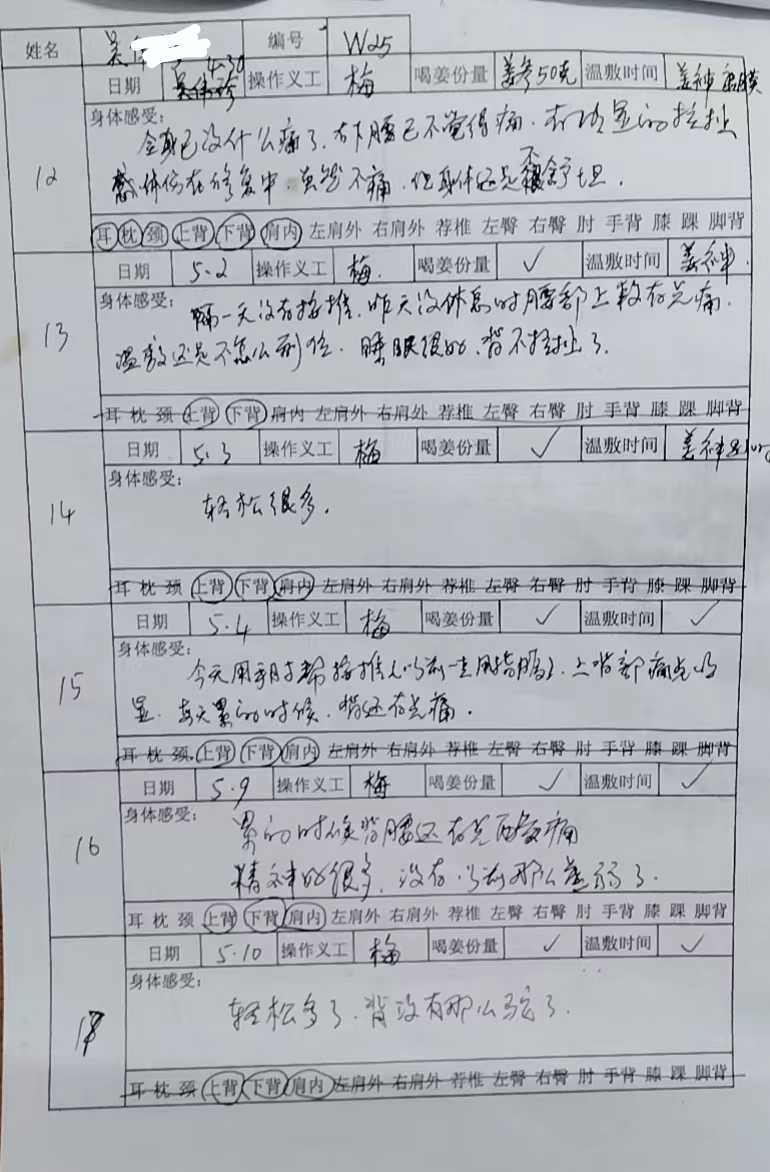 姓名 吴 编号 W25
12 日期 4.30 操作义工 梅 喝姜份量 姜参50克 温敷时间 姜神
身体感受:
全身已没什么痛了.右下腰已不觉得痛.有明显的拉扯
感.体伤在修复中.虽然不痛.但身体还是不很舒坦.
耳 枕 颈 上背 下背 肩内 左肩外 右肩外 荐椎 左臀 右臀 肘 手背 膝 踝 脚背
13 日期 5.2 操作义工 梅. 喝姜份量 ✓ 温敷时间 姜神.
身体感受: 隔一天没有按推.昨天没休息时腰部上段有点痛.
温敷还是不怎么到位.睡眠很好.背不拉扯了.
耳 枕 颈 上背 下背 肩内 左肩外 右肩外 荐椎 左臀 右臀 肘 手背 膝 踝 脚背
14 日期 5.3 操作义工 梅 喝姜份量 ✓ 温敷时间 姜神
身体感受:
轻松很多.
耳 枕 颈 上背 下背 肩内 左肩外 右肩外 荐椎 左臀 右臀 肘 手背 膝 踝 脚背
15 日期 5.4 操作义工 梅 喝姜份量 ✓ 温敷时间 ✓
身体感受:
今天用手肘帮按推.以前一直用指腸了.上背部痛点明
显.每天累的时候.背还有点痛.
耳 枕 颈 上背 下背 肩内 左肩外 右肩外 荐椎 左臀 右臀 肘 手背 膝 踝 脚背
16 日期 5.9 操作义工 梅 喝姜份量 ✓ 温敷时间 ✓
身体感受: 累的时候背腰还有点酸痛
精神好很多.没有以前那么虚弱了.
耳 枕 颈 上背 下背 肩内 左肩外 右肩外 荐椎 左臀 右臀 肘 手背 膝 踝 脚背
17 日期 5.10 操作义工 梅 喝姜份量 ✓ 温敷时间 ✓
身体感受:
轻松多了.背没有那么驼了.
耳 枕 颈 上背 下背 肩内 左肩外 右肩外 荐椎 左臀 右臀 肘 手背 膝 踝 脚背